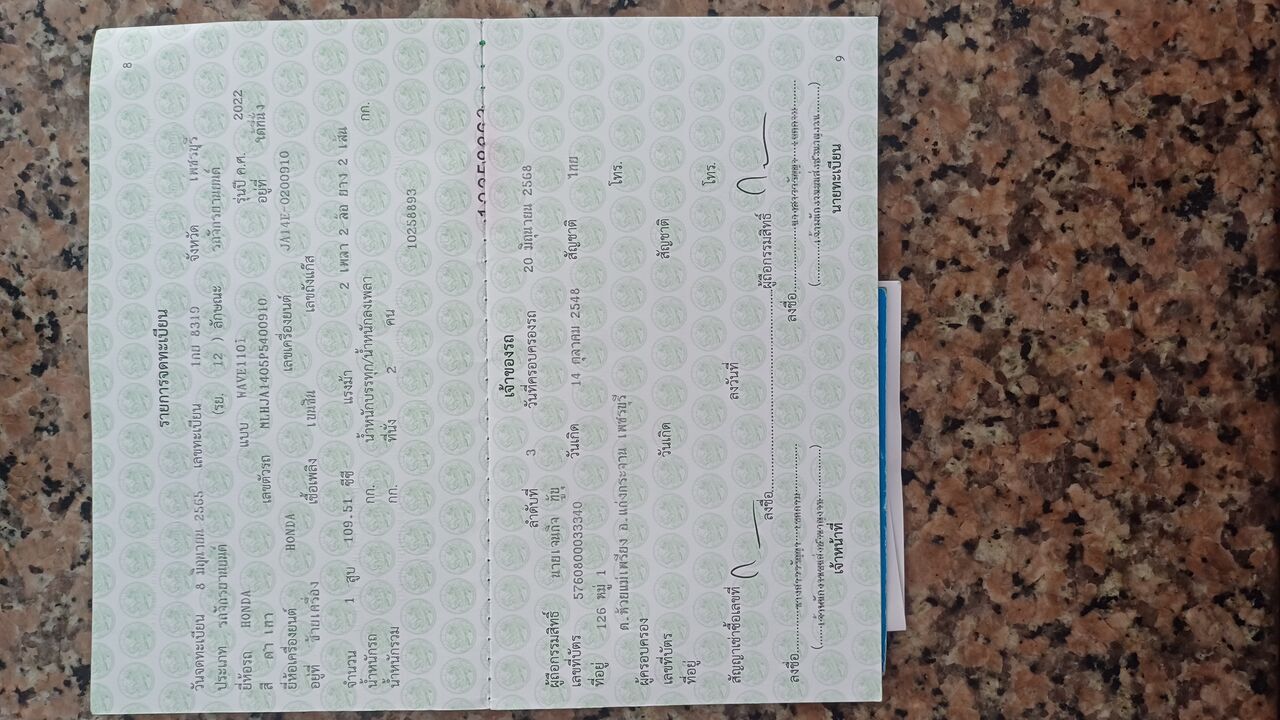 8
รายการจดทะเบียน
วันจดทะเบียน 8 มิถุนายน 2565 เลขทะเบียน 1กย 8319 จังหวัด เพชรบุรี
ประเภท รถจักรยานยนต์ (รย. 12 ) ลักษณะ รถจักรยานยนต์
ยี่ห้อรถ HONDA แบบ WAVE110i รุ่นปี ค.ศ. 2022
สี ดำ เทา เลขตัวรถ MLHJA1405P5400910 อยู่ที่ ใต้ที่นั่ง
ยี่ห้อเครื่องยนต์ HONDA เลขเครื่องยนต์ JA14E-0200910
อยู่ที่ ซ้ายเครื่อง เชื้อเพลิง เบนซิน เลขถังแก๊ส
จำนวน 1 สูบ 109.51 ซีซี แรงม้า 2 เพลา 2 ล้อ ยาง 2 เส้น
น้ำหนักรถ กก. น้ำหนักบรรทุก/น้ำหนักลงเพลา กก.
น้ำหนักรวม กก. ที่นั่ง 2 คน
10258893
เจ้าของรถ
ลำดับที่ 3 วันที่ครอบครองรถ 20 มิถุนายน 2568
ผู้ถือกรรมสิทธิ์ นาย
เลขที่บัตร 5760800033340 วันเกิด 14 ตุลาคม 2548 สัญชาติ ไทย
ที่อยู่ 126 หมู่ 1 โทร.
ต.ห้วยแม่เพรียง อ.แก่งกระจาน เพชรบุรี
ผู้ครอบครอง
เลขที่บัตร วันเกิด สัญชาติ
ที่อยู่ โทร.
สัญญาเช่าซื้อเลขที่ ลงวันที่
ลงชื่อ ผู้ถือกรรมสิทธิ์
ลงชื่อ ลงชื่อ
เจ้าหน้าที่ นายทะเบียน
9